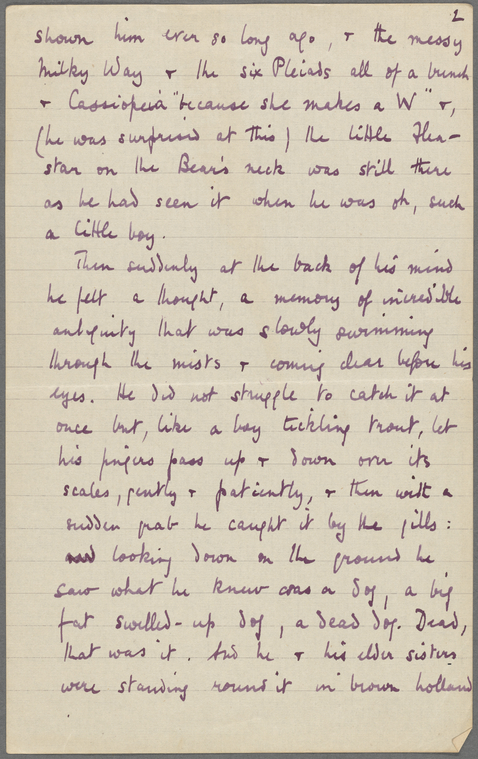 2
shown him ever so long ago, + the messy
Milky Way + the six Pleiads all of a bunch
+ Cassiopeia "because she makes a W" +,
(he was surprised at this) the little Flea-
star on the Bear's neck was still there
as he had seen it when he was oh, such
a little boy.
Then suddenly at the back of his mind
he felt a thought, a memory of incredible
antiquity that was slowly swimming
through the mists + coming clear before his
eyes. He did not struggle to catch it at
once but, like a boy tickling trout, let
his fingers pass up + down over its
scales, gently + patiently, + then with a
sudden grab he caught it by the gills:
looking down on the ground he
saw what he knew was a dog, a big
fat swelled-up dog, a dead dog. Dead,
that was it. And he + his elder sisters
were standing round it in brown holland